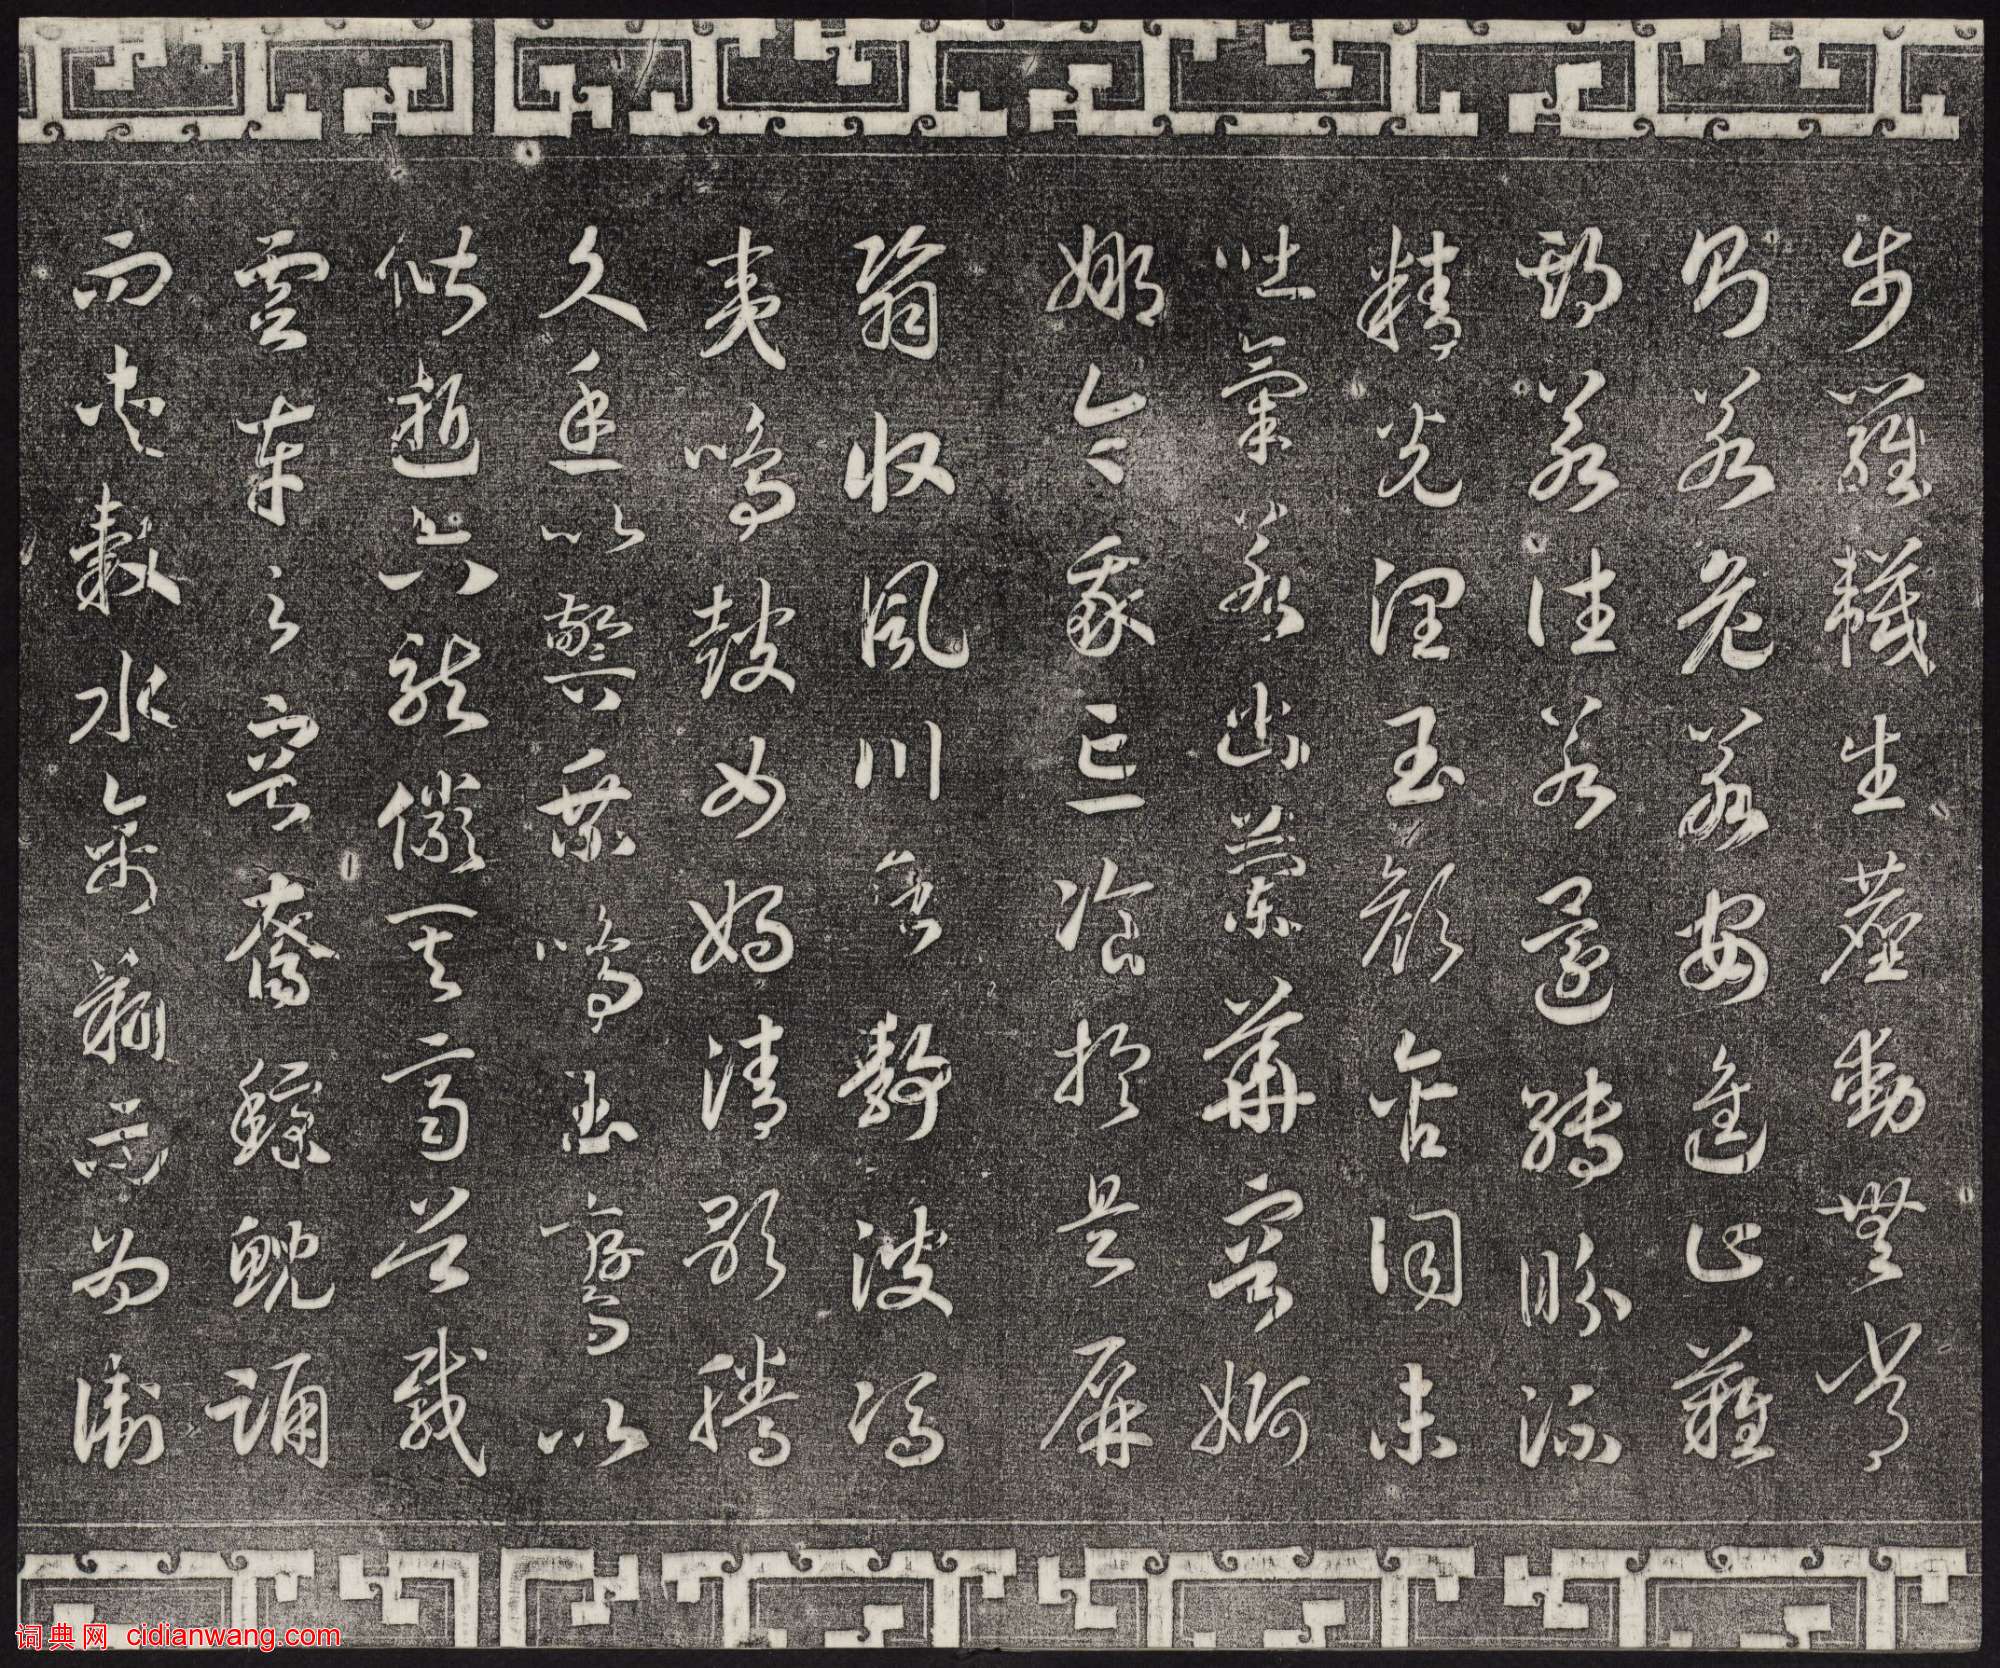 步羅韈生塵動無常
則若危若安進止難
期若往若還轉眄流
精光潤玉顏含詞未
吐氣若幽蘭華容婀
娜令我忘飡於是屏
翳收風川后靜波馮
夷鳴鼓女媧清歌騰
文魚以警乘鳴玉鸞以
偕逝六龍儼其齊首載
雲車之容裔鯨鯢踊
而夾轂水禽翔而為衛
词典网 cidianwang.com